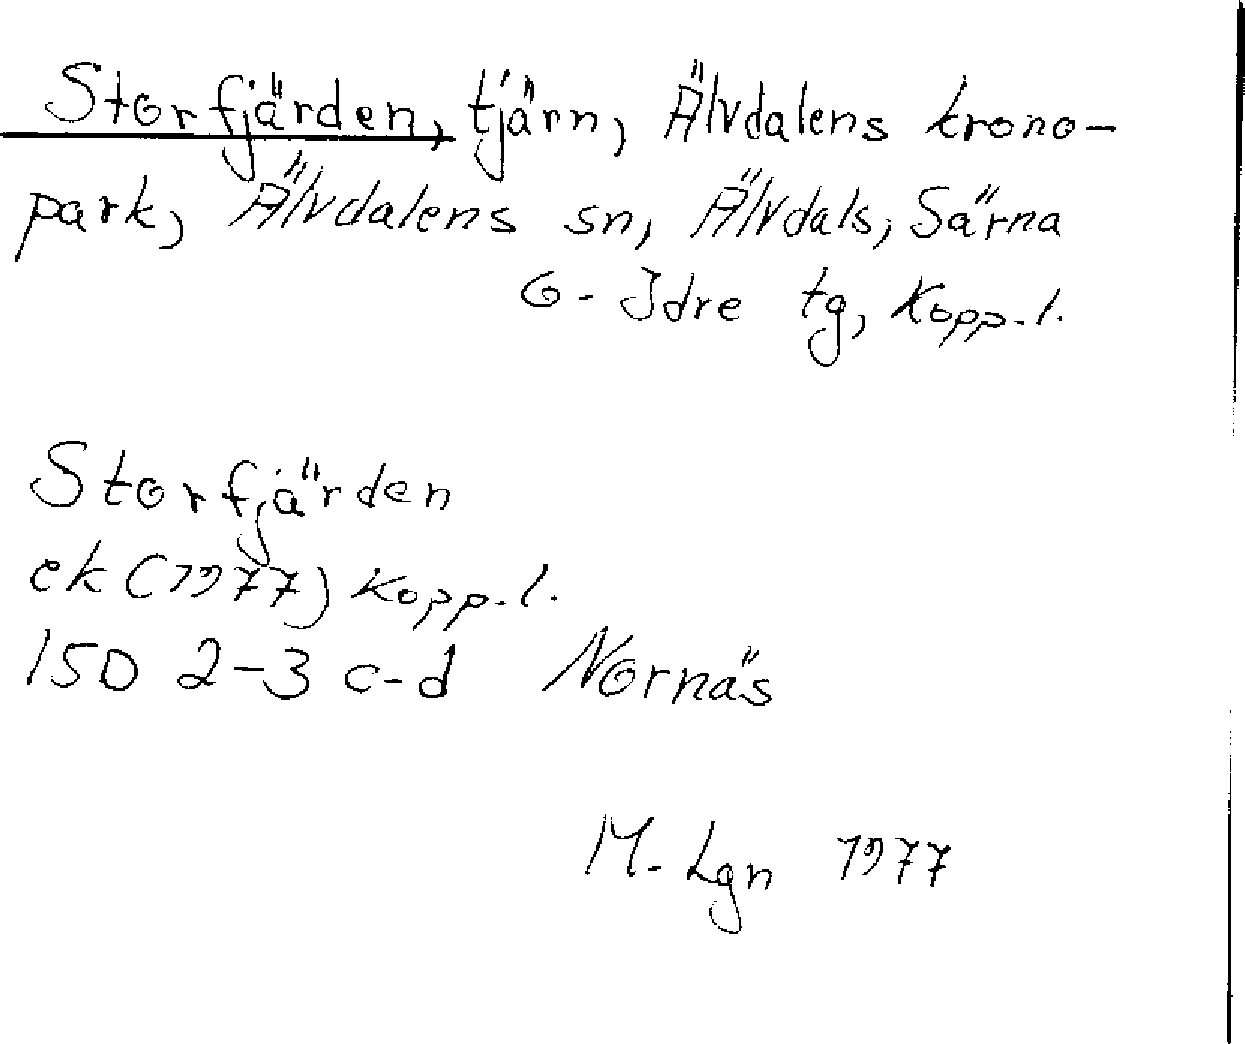 Storfjärden, tjärn, Älvdalens krono-
park, Älvdalens sn, Älvdals, Särna
o- Idre tg, Kopp. l.
Storfjärden
ek (1977) Kopp. l.
15D 2-3 c-d Nornäs
M. Lgn 1977